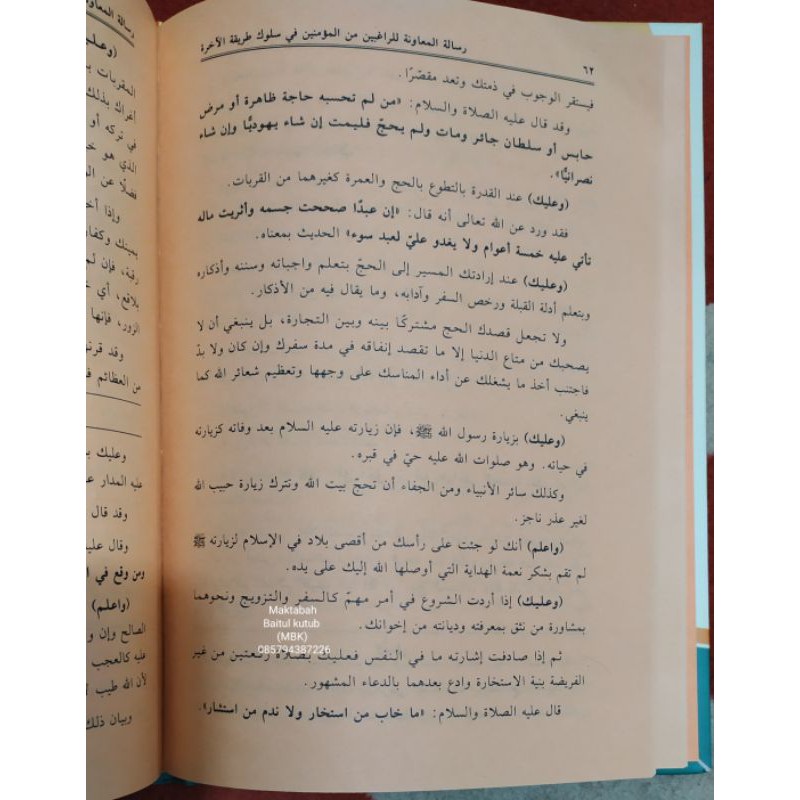 رسالة المعاونة للراغبين من المؤمنين في سلوك طريقة الآخرة
٦٢
فيستقر الوجوب في ذمتك وتعد مقصّرًا.
وقد قال عليه الصلاة والسلام: «من لم تحسبه حاجة ظاهرة أو مرض
حابس أو سلطان جائر ومات ولم يحجّ فليمت إن شاء يهوديًّا وإن شاء
نصرانيًّا».
(وعليك) عند القدرة بالتطوع بالحج والعمرة كغيرهما من القربات.
فقد ورد عن الله تعالى أنه قال: «إن عبدًا صححت جسمه وأثريت ماله
تأتي عليه خمسة أعوام ولا يغدو عليّ لعبد سوء» الحديث بمعناه.
(وعليك) عند إرادتك المسير إلى الحجّ بتعلم واجباته وسننه وأذكاره
وبتعلم أدلة القبلة ورخص السفر وآدابه، وما يقال فيه من الأذكار.
ولا تجعل قصدك الحج مشتركًا بينه وبين التجارة، بل ينبغي أن لا
يصحبك من متاع الدنيا إلا ما تقصد إنفاقه في مدة سفرك وإن كان ولا بدّ
فاجتنب أخذ ما يشغلك عن أداء المناسك على وجهها وتعظيم شعائر الله كما
ينبغي.
(وعليك) بزيارة رسول الله ﷺ، فإن زيارته عليه السلام بعد وفاته كزيارته
في حياته. وهو صلوات الله عليه حيّ في قبره.
وكذلك سائر الأنبياء ومن الجفاء أن تحجّ بيت الله وتترك زيارة حبيب الله
لغير عذر ناجز.
(واعلم) أنك لو جئت على رأسك من أقصى بلاد في الإسلام لزيارته ﷺ
لم تقم بشكر نعمة الهداية التي أوصلها الله إليك على يده.
(وعليك) إذا أردت الشروع في أمر مهمّ كالسفر والتزويج ونحوهما
بمشاورة من تثق بمعرفته وديانته من إخوانك.
ثم إذا صادفت إشارته ما في النفس فعليك بصلاة ركعتين من غير
الفريضة بنية الاستخارة وادع بعدهما بالدعاء المشهور.
قال عليه الصلاة والسلام: «ما خاب من استخار ولا ندم من استشار».
Maktabah
Baitul kutub
(MBK)
085794387226
رسالة المعاونة
(وعليك)
المقربات
في تركه أو
وإذا
بيمينك
رقبة، فإن لم
الزور، فإنها
وقد
من العظائم
وعليك
عليه المدار
وقد قال
وقال
ومن وقع في
(واعلم)
الصالح وإن
عليه كالعجب
لأن الله طيب لا
وبيان ذلك